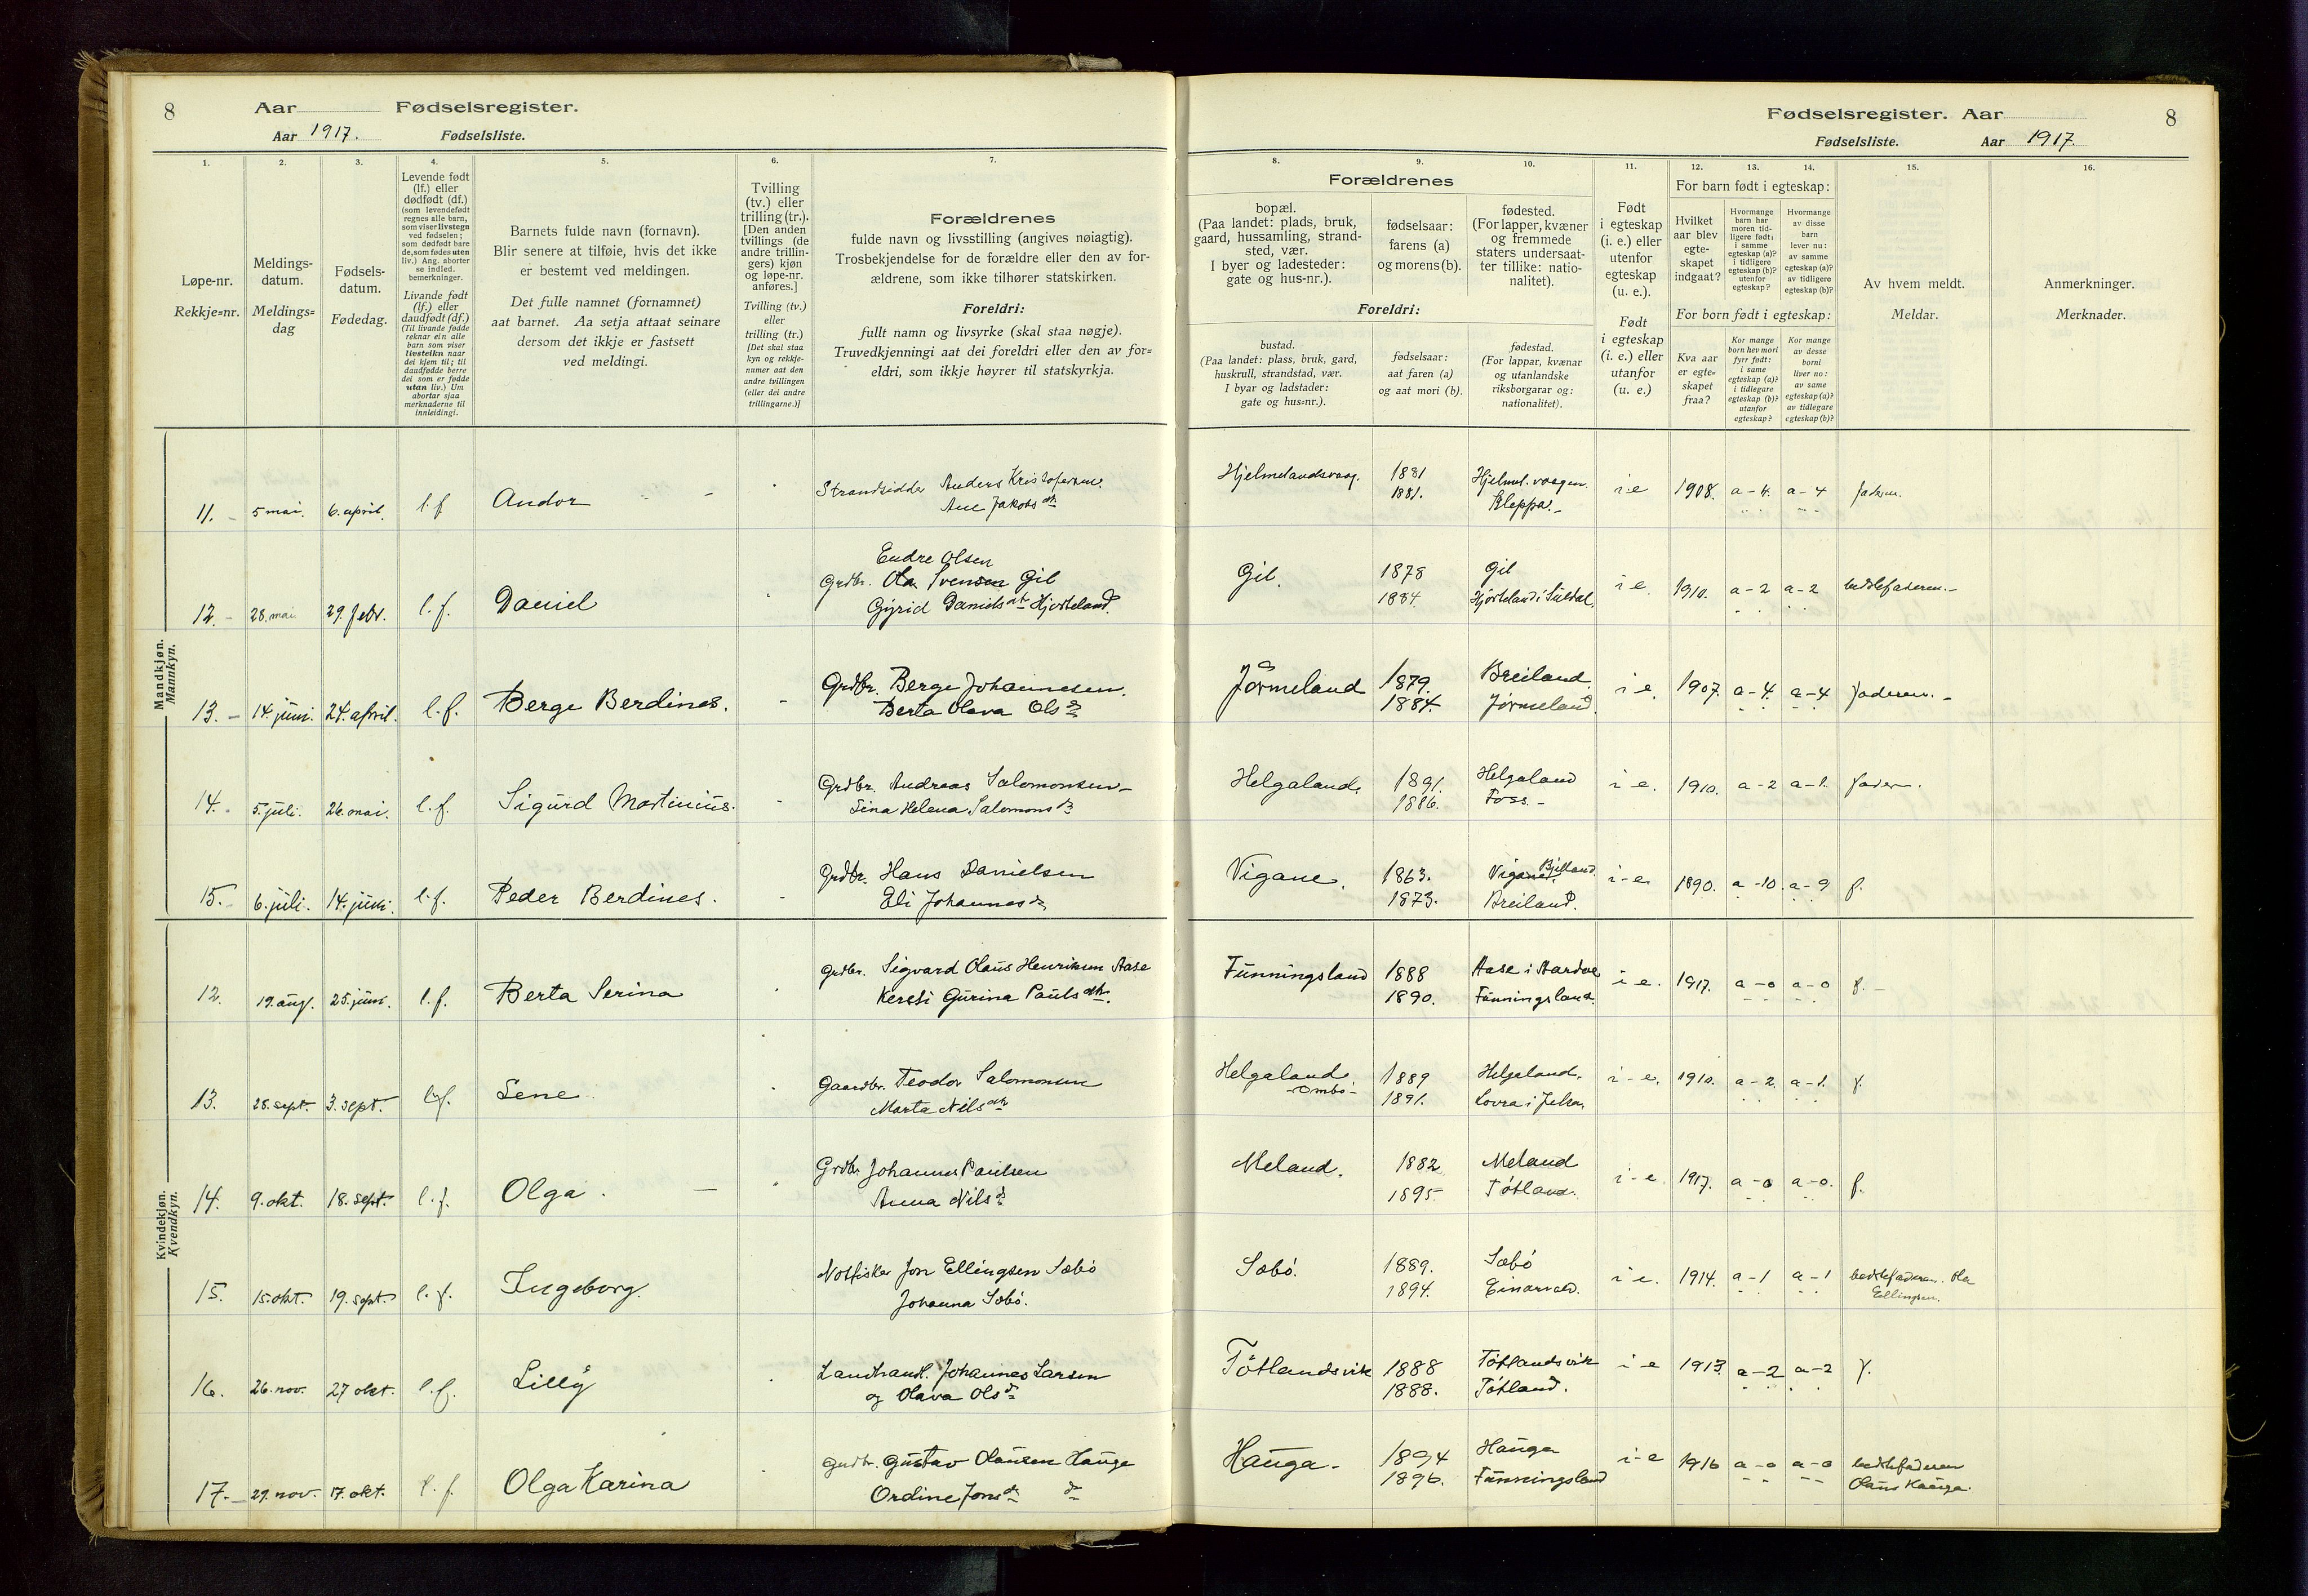 8 Aar Fødselsregister.
Aar 1917. Fødselsliste.
1. 2. 3. 4. 5. 6. 7.
Løpe-nr.
Rekkje=nr.
Meldings-
datum.
Meldings=
dag
Fødsels-
datum.
Fødedag.
Levende født
(lf.) eller
dødfødt (df.)
(som levendefødt
regnes alle barn,
som viser livstegn
ved fødselen;
som dødfødt bare
de, som fødes uten
liv.) Ang. aborter
se indled.
bemerkninger.
Livande født
(lf.) eller
daudfødt (df.)
(Til livande fødde
reknar ein alle
barn som viser
livsteikn naar
dei kjem til; til
daudfødde berre
dei som er fødde
utan liv.) Um
abortar sjaa
merknaderne til
innleidingi.
Barnets fulde navn (fornavn).
Blir senere at tilføie, hvis det ikke
er bestemt ved meldingen.
Det fulle namnet (fornamnet)
aat barnet. Aa setja attaat seinare
dersom det ikkje er fastsett
ved meldingi.
Tvilling
(tv.) eller
trilling (tr.).
[Den anden
tvillings (de
andre trillin-
gers) kjøn
og løpe-nr.
anføres.]
Tvilling (tv.)
eller
trilling (tr.)
[Det skal staa
kyn og rekkje-
numer aat den
andre tvillingen
(eller dei andre
trillingarne.)]
Forældrenes
fulde navn og livsstilling (angives nøiagtig).
Trosbekjendelse for de forældre eller den av for-
ældrene, som ikke tilhører statskirken.
Foreldri:
fullt namn og livsyrke (skal staa nøgje).
Truvedkjenningi aat dei foreldri eller den av for=
eldri, som ikkje høyrer til statskyrkja.
Mandkjøn.
Mannkyn.
11. - 5 mai. 6. april. l.f Andor - Strandsidder Anders Kristofersen.
Ane Jakobsdtr
12. - 28. mai 29. febr. l.f. Daniel Endre Olsen
Grdbr. Ola Svensen Gil
Gyrid Danielsdtr Hjorteland.
13. - 14. juni. 24. april. l.f. Berge Berdines. - Grdbr. Berge Johannesen.
Berta Olava Olsd
14. - 5. juli. 26. mai. l.f. Sigurd Martinius. - Grdbr. Andreas Salomonsen -
Sina Helena Salomonsd
15. - 6. juli. 14. juni. l.f. Peder Berdines. - Grdbr. Hans Danielsen
Eli Johannesd
Kvindekjøn.
Kvendkyn.
12. 19. aug. 25. juni. l.f. Berta Serina Grdbr. Sigvard Olaus Henriksen Aase
Kersti Gurina Paulsdtr.
13. 28. sept. 3. sept. l.f. Lene Gaardbr. Teodor Salomonsen
Marta Nilsdtr
14. 9. okt. 18. sept. l.f. Olga. - Grdbr Johannes Paulsen
Anna Nilsd
15. 15. okt. 19. sept. l.f. Ingeborg. Notfisker Jon Ellingsen Sæbö
Johanna Sæbö.
16. 26. nov. 27 okt. l.f. Lilly Landhandl. Johannes Larsen
og Olava Olsd
17. - 29. nov. 17. okt. l.f. Olga Karina Grdbr. Gustav Olausen Hauge
Ordine Jonsd
Fødselsregister. Aar 8
Fødselsliste. Aar 1917.
8. 9. 10. 11. 12. 13. 14. 15. 16.
Forældrenes
bopæl.
(Paa landet: plads, bruk,
gaard, hussamling, strand-
sted, vær.
I byer og ladesteder:
gate og hus-nr.).
fødselsaar:
farens (a)
og morens (b).
fødested.
(For lapper, kvæner
og fremmede
staters undersaat-
ter tillike: natio-
nalitet).
Foreldri:
bustad.
(Paa landet: plass, bruk, gard,
huskrull, strandstad, vær.
I byar og ladstader:
gate og hus=nr.).
fødselsaar:
aat faren (a)
og aat mori (b).
fødestad.
(For lappar, kvænar
og utanlandske
riksborgarar og:
nationalitet).
Født
i egteskap
(i. e.) eller
utenfor
egteskap
(u. e.).
Født
i egteskap
(i. e.) eller
utanfor
(u. e.)
For barn født i egteskap:
Hvilket
aar blev
egte-
skapet
indgaat?
Hvormange
barn har
moren tid-
ligere født:
i samme
egteskap (a)?
i tidligere
egteskap (b)?
utenfor
egteskap?
Hvormange
av disse
barn
lever nu:
av samme
egteskap (a)?
av tidligere
egteskap (b)?
For born født i egteskap:
Kva aar
er egte=
skapet
fraa?
Kor mange
born hev mori
fyrr født:
i same
egteskap (a)?
i tidlegare
egteskap (b)?
utanfor
egteskap?
Kor mange
av desse
borni
liver no:
av same
egteskap (a)?
av tidlegare
egteskap (b)?
Av hvem meldt.
Meldar.
Anmerkninger.
Merknader.
Hjelmelandsvaag. 1881 Hjelml. vaagen i e 1908. a - 4. a - 4 faderen.
1881. Kleppa. -
Gil. 1878 Gil i e. 1910. a - 2 a - 2 bedstefaderen. -
1884. Hjorteland i Suldal.
Jörmeland 1879. Breiland i e. 1907. a - 4. a - 4 faderen. -
1884. Jörmeland
Helgaland. 1891. Helgaland i e. 1910. a - 2 a - 1. fader.
1886. Foss. -
Vigane. 1863. Vigane i - e. 1890. a - 10. a - 9 f.
1873. Breiland.
Funningsland 1888 Aase i Aardal i e. 1917. a - 0 a - 0 f. -
1890. Funningsland.
Helgaland 1889 Helgeland. i - e. 1910. a - 2. a - 1. f.
- Ombö - 1891. Lovra i Jelsa.
Meland. 1882 Meland i - e. 1917. a - 0 a - 0. f.
1895. Tötland.
Sæbö. 1889. Sæbö i e. 1914. a - 1 a - 1 bedstefaderen. Ola
1894. Einarvold. Ellingsen.
Tötlandsvik 1888 Tötlandsvik i - e 1913. a - 2 a - 2 f.
1888. Tötland.
Hauga. 1894 Hauga i - e 1916 a - 0 a - 0 bedstefaderen
1896. Funningsland Olaus Hauga.